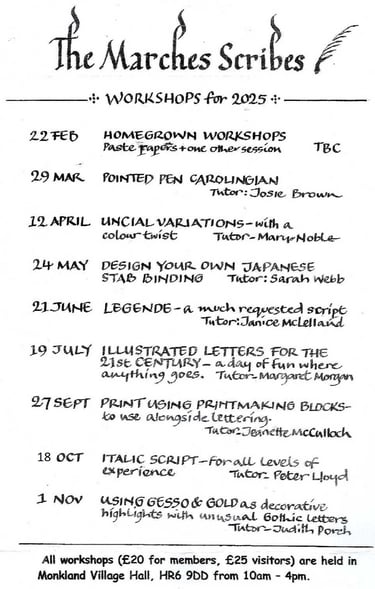 The Marches Scribes
WORKSHOPS for 2025
22 FEB HOMEGROWN WORKSHOPS
Paste papers + one other session TBC
29 MAR POINTED PEN CAROLINGIAN
Tutor: Josie Brown
12 APRIL UNCIAL VARIATIONS - with a
colour twist Tutor - Mary Noble
24 MAY DESIGN YOUR OWN JAPANESE
STAB BINDING Tutor: Sarah Webb
21 JUNE LEGENDE - a much requested script
Tutor: Janice McLelland
19 JULY ILLUSTRATED LETTERS FOR THE
21st CENTURY - a day of fun where
anything goes. Tutor - Margaret Morgan
27 SEPT PRINT USING PRINTMAKING BLOCKS-
to use alongside lettering.
Tutor: Jeanette McCulloch
18 OCT ITALIC SCRIPT - For all levels of
experience Tutor - Peter Lloyd
1 NOV USING GESSO & GOLD as decorative
highlights with unusual Gothic letters
Tutor - Judith Porch
All workshops (£20 for members, £25 visitors) are held in
Monkland Village Hall, HR6 9DD from 10am - 4pm.